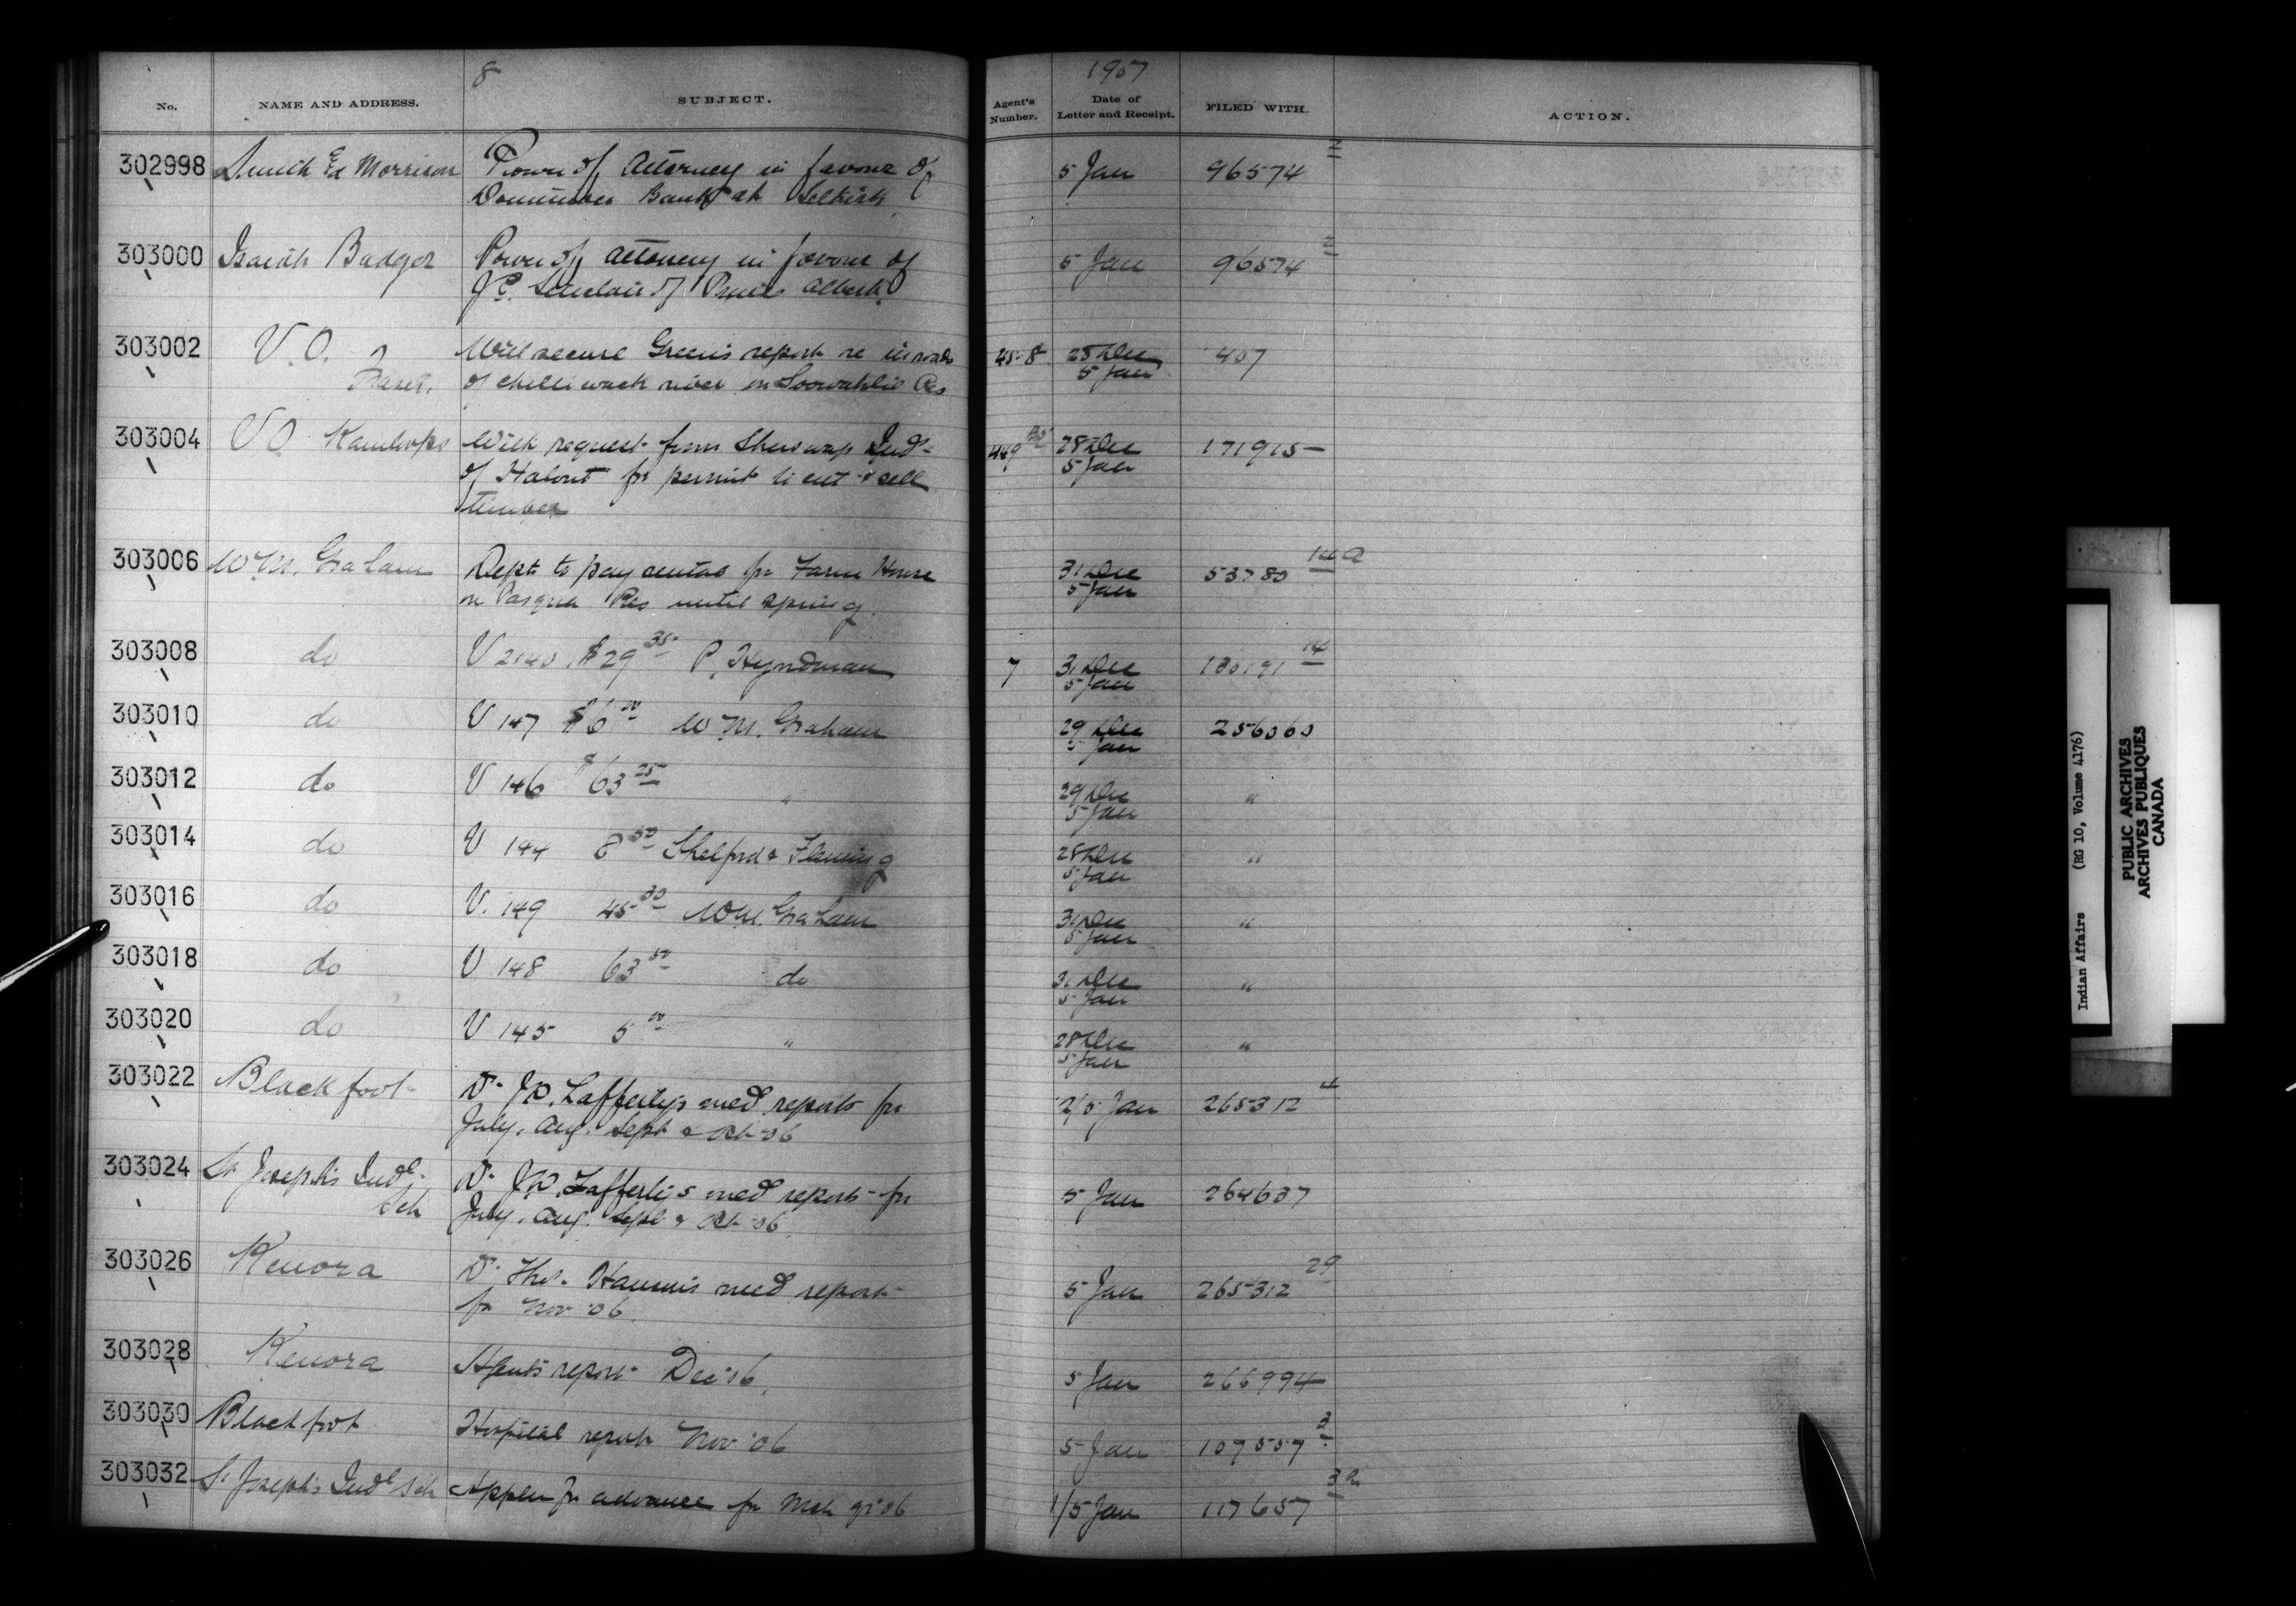 8
1907
No. NAME AND ADDRESS. SUBJECT. Agent's Number. Date of Letter and Receipt. FILED WITH. ACTION.
302998 Smith & Morrison Power of Attorney in favour of 5 Jan 96574 2
Dominion Bank at Selkirk
303000 Isaiah Badger Power of Attorney in favour of 5 Jan 96574 2
J.C. Sinclair of Prince Albert
303002 V.O. Fraser. Will secure Green's report re inroads 458 28 Dec 407
of Chilliwack river on Soowahlie Res 5 Jan
303004 V O Kamloops With request from Shuswap Inds 449 28 Dec 171915
of Halout for permit to cut & sell 5 Jan
timber
303006 W M. Graham Dept to pay rental for Farm House 31 Dec 53780 14a
on Pasqua Res until spring 5 Jan
303008 do V 2140 $29 35 P. Hyndman 7 31 Dec 130191 14
5 Jan
303010 do V 147 $6 00 W M. Graham 29 Dec 256060
5 Jan
303012 do V 146 $63 25 " 29 Dec "
5 Jan
303014 do V 144 8 50 Shelford & Fleming 28 Dec "
5 Jan
303016 do V. 149 45 30 W M. Graham 31 Dec "
5 Jan
303018 do V 148 63 50 do 31 Dec "
5 Jan
303020 do V 145 5 00 " 28 Dec "
5 Jan
303022 Blackfoot Dr J.D. Lafferty's med reports for 2/5 Jan 265312 4
July, Aug. Sept & Oct 06
303024 St Joseph's Indl Sch Dr J.D. Lafferty's med reports for 5 Jan 264637
July, Aug. Sept & Oct 06
303026 Kenora Dr Thos. Hanson's med report 5 Jan 265312 29
for Nov 06
303028 Kenora Agents report Dec 06 5 Jan 266994
303030 Blackfoot Hospital report Nov 06 5 Jan 107557 3
303032 St Joseph's Indl Sch Appln for advance for Mch qr 06 1/5 Jan 117657 3a
Indian Affairs (RG 10, Volume 4176)
PUBLIC ARCHIVES
ARCHIVES PUBLIQUES
CANADA